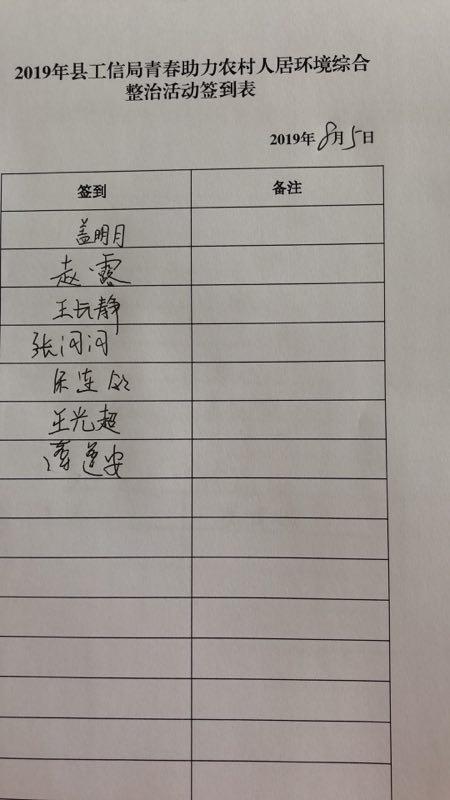 2019年县工信局青春助力农村人居环境综合
整治活动签到表
2019年8月5日
签到 备注
盖明月
赵露
王长静
张闪闪
王光超